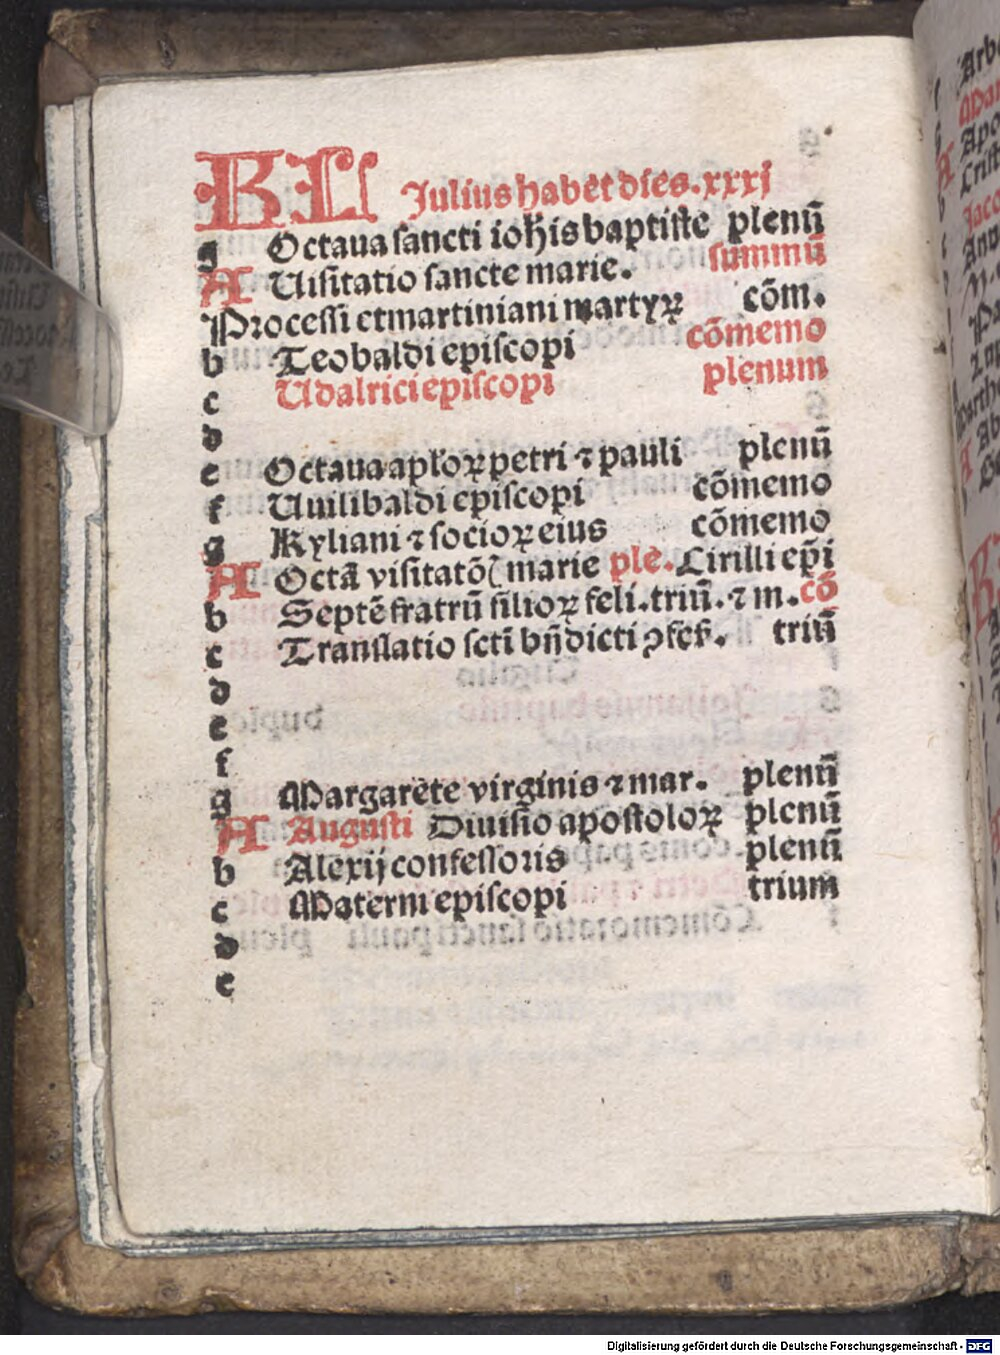 KL Julius habet dies. xxxj
g Octaua sancti ioħis baptiste plenū
A Uisitatio sancte marie. summū
Processi et martiniani martyrꝝ cōm.
b Teobaldi episcopi cōmemo
c Udalrici episcopi plenum
d
e Octaua apl'oꝝ petri ⁊ pauli plenū
f Uuilibaldi episcopi cōmemo
g Kyliani ⁊ socioꝝ eius cōmemo
A Octā visitatō marie plē. Cirilli ep̄i
b Septē fratrū filioꝝ feli. triū. ⁊ m. cō
c Translatio sctī bn̄dicti ꝯfeſ. triū
d
e
f
g Margarēte virginis ⁊ mar. plenū
A Augusti Diuisio apostoloꝝ plenū
b Alexij confessoris plenū
c Materni episcopi trium
d
e
Digitalisierung gefördert durch die Deutsche Forschungsgemeinschaft - DFG